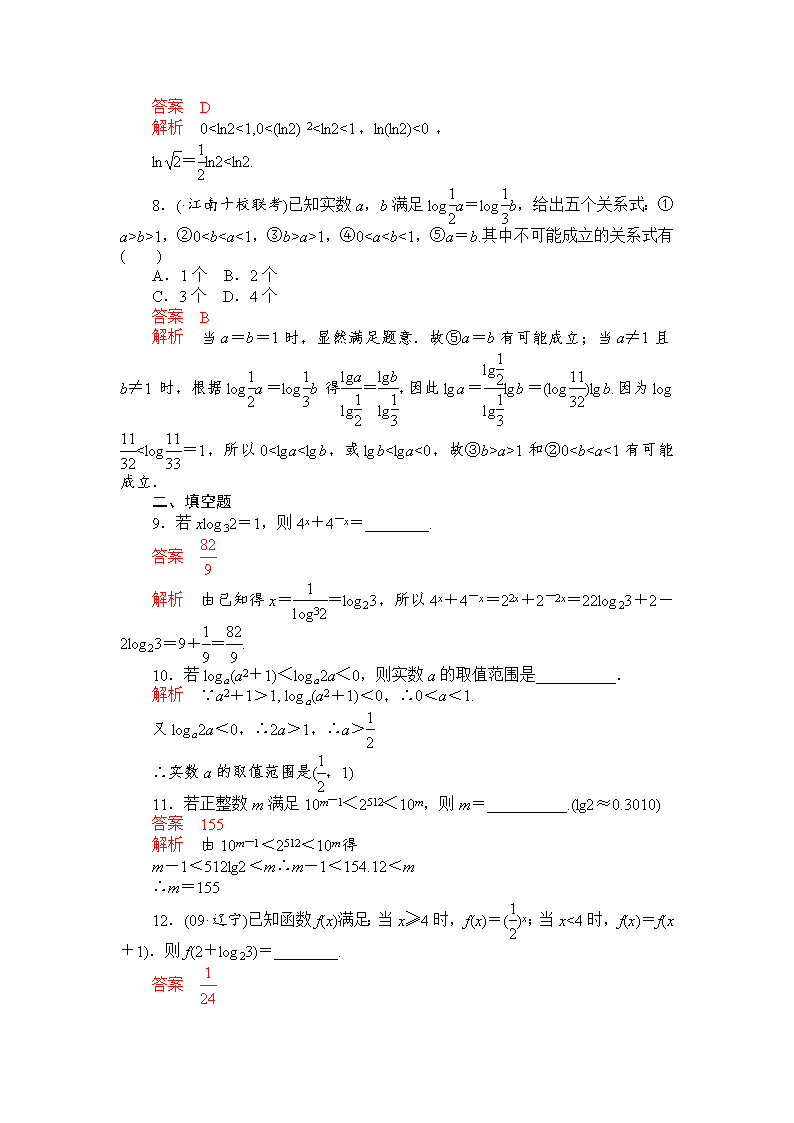 答案　D
解析　0<ln2<1,0<(ln2) ²<ln2<1，ln(ln2)<0，
ln√2=1/2ln2<ln2.
8．(·江南十校联考)已知实数 a，b 满足 log1/2a＝log1/3b，给出五个关系式：①
a>b>1，②0<b<a<1，③b>a>1，④0<a<b<1，⑤a＝b.其中不可能成立的关系式有
(　　)
A．1个　B．2个
C．3个　D．4个
答案　B
解析　当 a＝b＝1 时，显然满足题意．故⑤a＝b 有可能成立；当 a≠1 且
b≠1 时，根据 log1/2a＝log1/3b 得lga/lg1/2＝lgb/lg1/3，因此 lga＝lg1/2/lg1/3lgb＝(log11/32)lgb.因为 log
11/32<log11/33＝1，所以 0<lga<lgb，或 lgb<lga<0，故③b>a>1 和②0<b<a<1 有可能
成立．
二、填空题
9．若 xlog₃2＝1，则 4ˣ＋4⁻ˣ＝________.
答案　82/9
解析　由已知得 x＝1/log³2＝log₂3，所以 4ˣ＋4⁻ˣ＝2²ˣ＋2⁻²ˣ＝22log₂3＋2－
2log₂3＝9＋1/9＝82/9.
10．若 logₐ(a²＋1)＜logₐ2a＜0，则实数 a 的取值范围是__________．
解析　∵a²＋1＞1, logₐ(a²＋1)＜0，∴0＜a＜1.
又 logₐ2a＜0，∴2a＞1，∴a＞1/2
∴实数 a 的取值范围是(1/2，1)
11．若正整数 m 满足 10ᵐ⁻¹＜2⁵¹²＜10ᵐ，则 m＝__________.(lg2≈0.3010)
答案　155
解析　由 10ᵐ⁻¹＜2⁵¹²＜10ᵐ得
m－1＜512lg2＜m∴m－1＜154.12＜m
∴m＝155
12．(09·辽宁)已知函数 f(x)满足：当 x≥4 时，f(x)＝(1/2)ˣ；当 x<4 时，f(x)＝f(x
＋1)．则 f(2＋log₂3)＝________.
答案　1/24